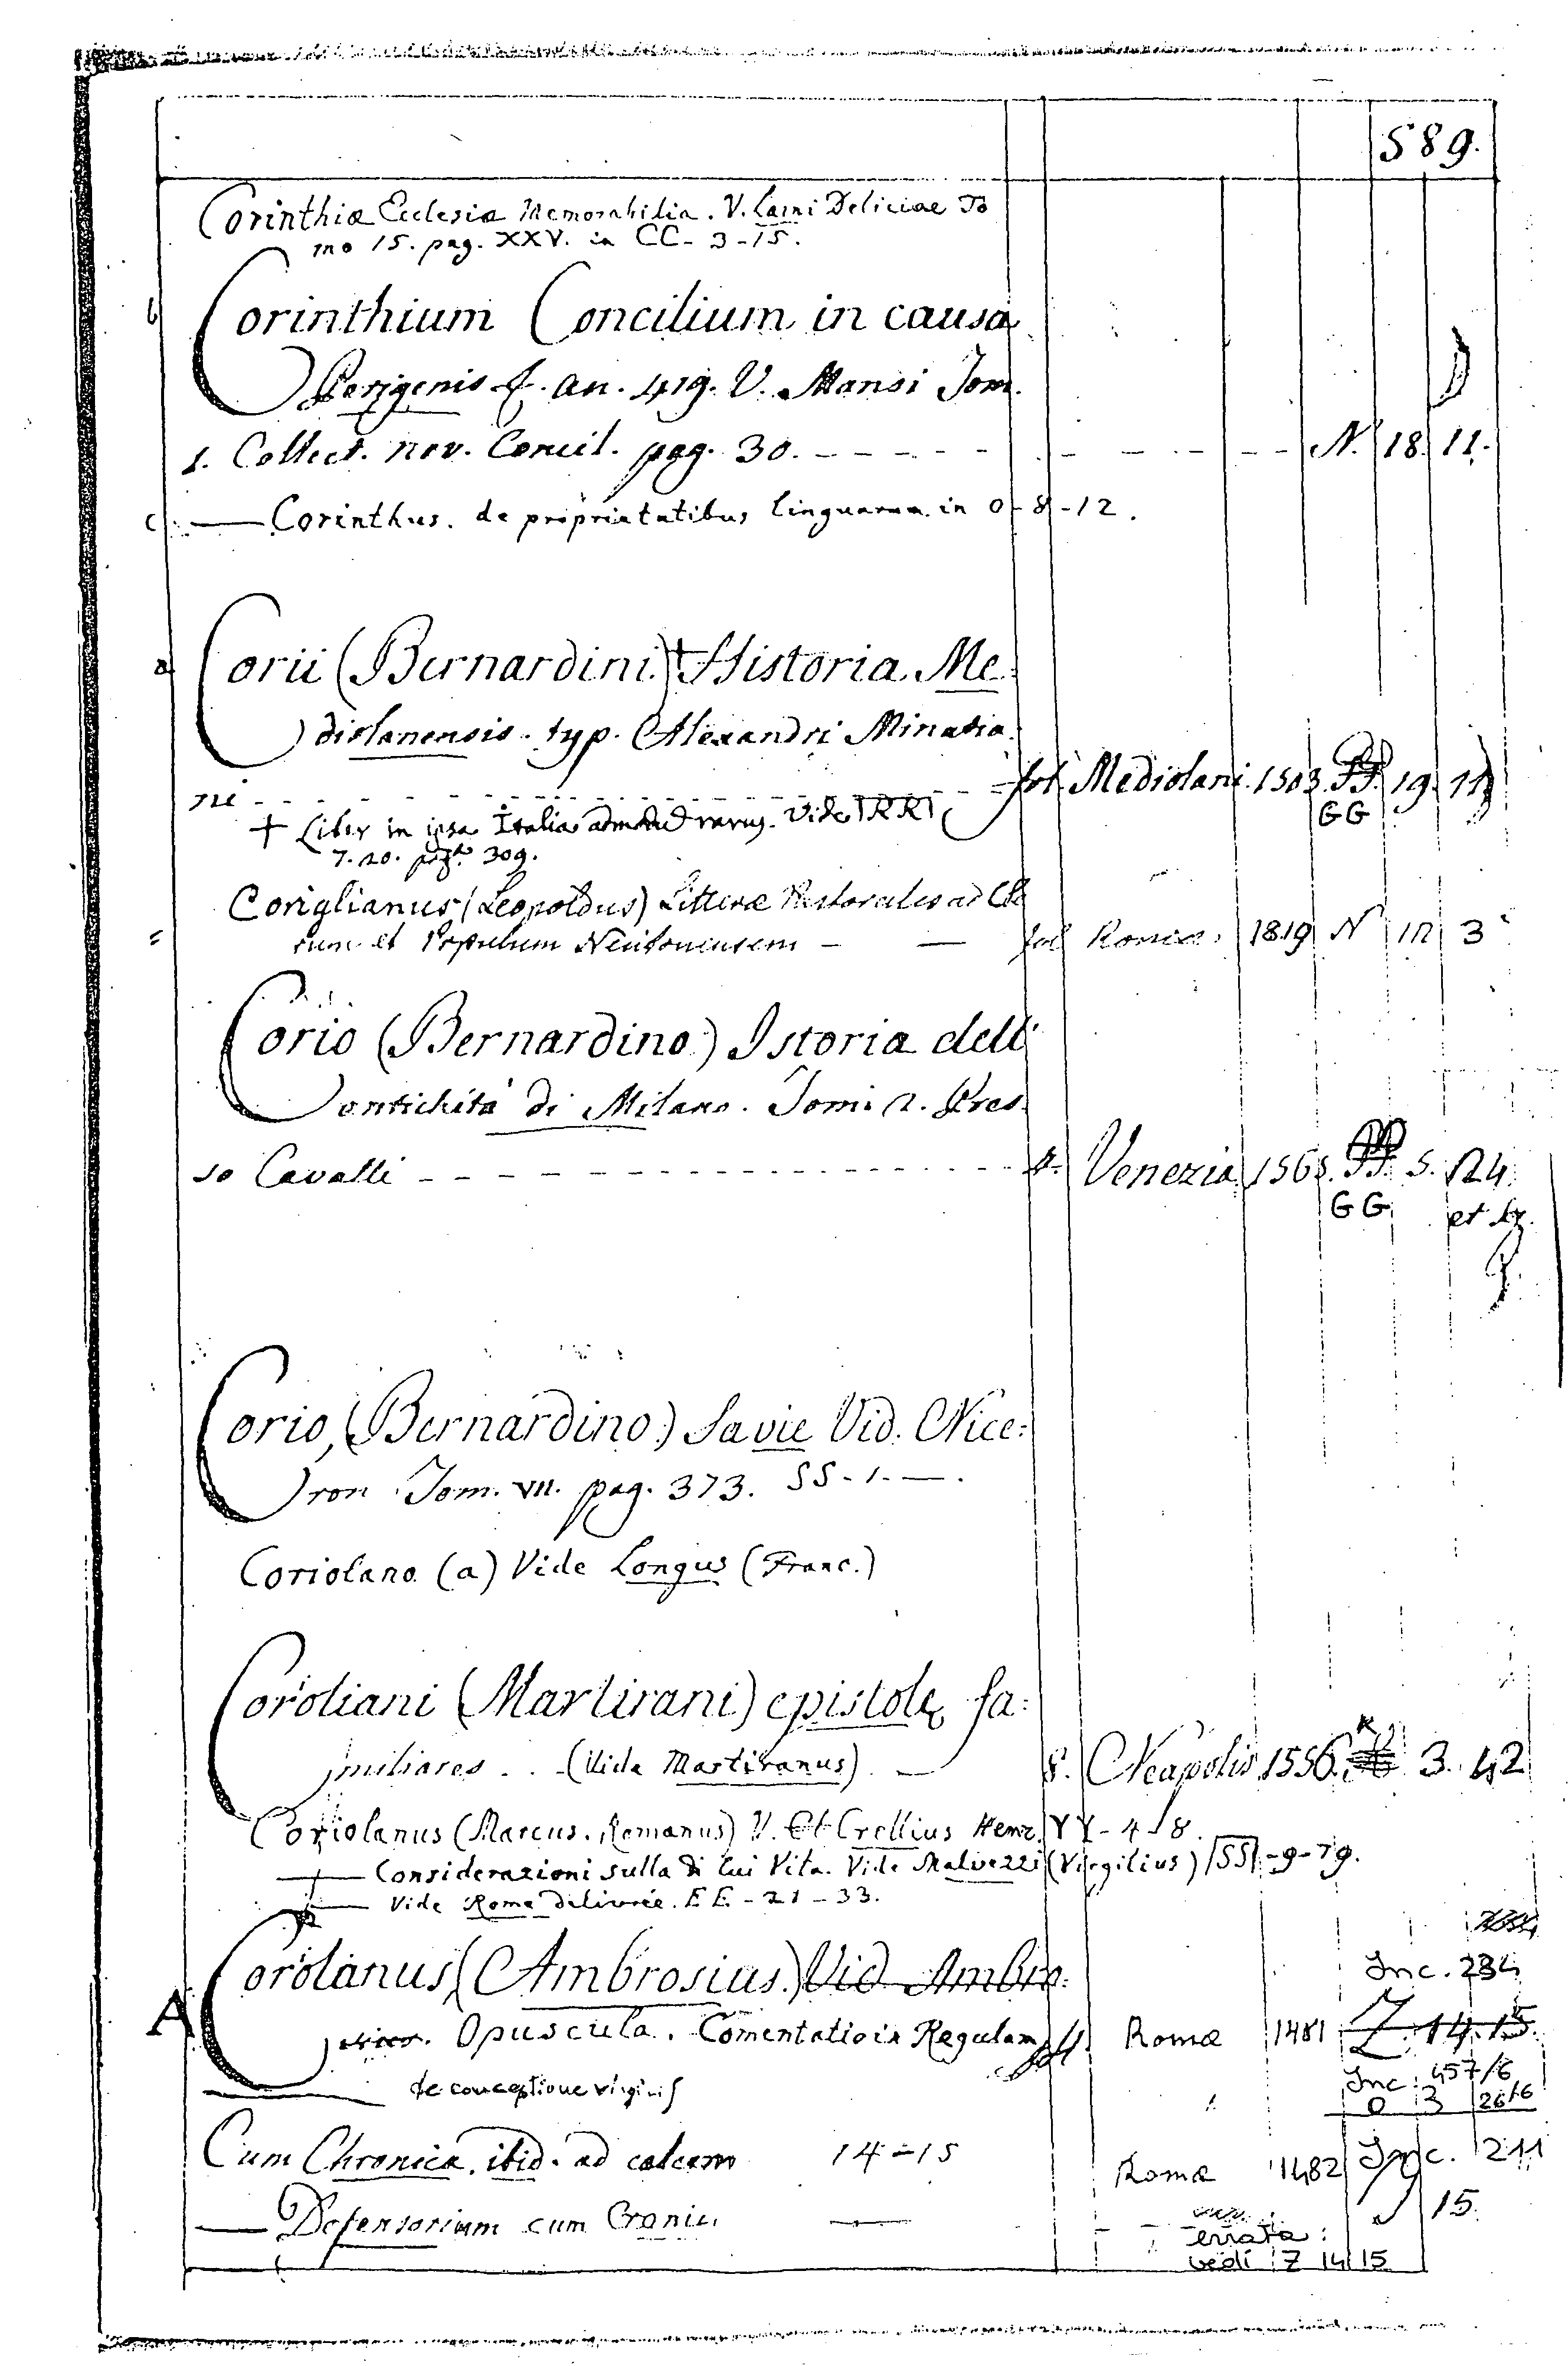 589.
Corinthiæ Ecclesiæ Memorabilia. V. Lami Deliciae To
mo 15. pag. XXV. in CC-3-15.
b Corinthium Concilium in causa
Perigenis f. an. 419. V. Mansi Tom.
1. Collect. nov. Concil. pag. 30. - - - - - - - - - - N. 18. 11.
c — Corinthus. de proprietatibus linguarum in O-8-12.
a Corii (Bernardini) + Historia Me
diolanensis. typ. Alexandri Minutia
ni - - - - - - - - - - fol. Mediolani. 1503. 19. 11
GG
+ Liber in ipsa Italia admodum rarus. Vide RR
7. 20. 309.
Coriglianus (Leopoldus) Litteræ Pastorales ad Cle
rum et Populum Neritonensem — — fol Romæ. 1819 N 12 3
Corio (Bernardino) Istoria dell'
antichità di Milano. Tomi 2. Pres
so Cavalli - - - - - - - - - - Venezia 1565. 5. 24.
GG et
Corio (Bernardino) Sa vie Vid. Nice:
ron Tom. VII. pag. 373. SS-1-—.
Coriolano (a) Vide Longus (Franc.)
Coroliani (Martirani) epistolæ fa:
miliares . . (Vide Martiranus) — 8. Neapolis 1556. K 3. 42
Coriolanus (Marcus. Romanus) V. Crellius Henr. YY-4-8.
— Considerazioni sulla di lui Vita. Vide Malvezzi (Virgilius) SS-9-79.
— Vide Rome delivrée. EE-21-33.
Inc. 234
A Corolanus (Ambrosius) Vid Ambro:
Opuscula. Comentatio in Regulam Romæ 1481 Z. 14. 15.
de conceptione virginis
Inc: 457/6
0 3 26/6
Cum Chronica, ibid. ad calcem 14=15 Romæ 1482 Inc. 211
— Defensorium cum Cronic. — 15.
errata:
vedi Z 14 15